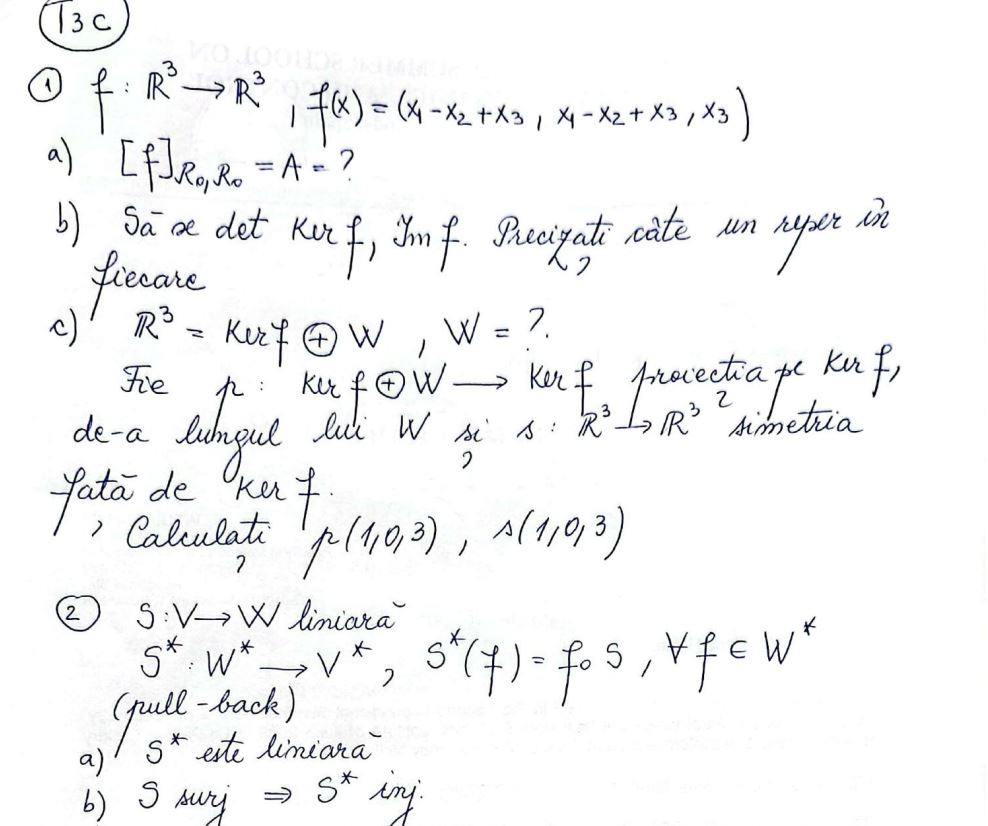 T3C
① f : ℝ³ → ℝ³, f(x) = (x₁ - x₂ + x₃, x₁ - x₂ + x₃, x₃)
a) [f]R₀,R₀ = A = ?
b) Să se det Ker f, Im f. Precizați câte un reper în
fiecare
c) ℝ³ = Ker f ⊕ W, W = ?.
Fie p : Ker f ⊕ W → Ker f proiectia pe Ker f,
de-a lungul lui W și s : ℝ³ → ℝ³ simetria
față de Ker f.
Calculați p(1,0,3), s(1,0,3)
② S : V → W liniară
S* : W* → V*, S*(f) = f∘S, ∀ f ∈ W*
(pull-back)
a) S* este liniară
b) S surj ⇒ S* inj.